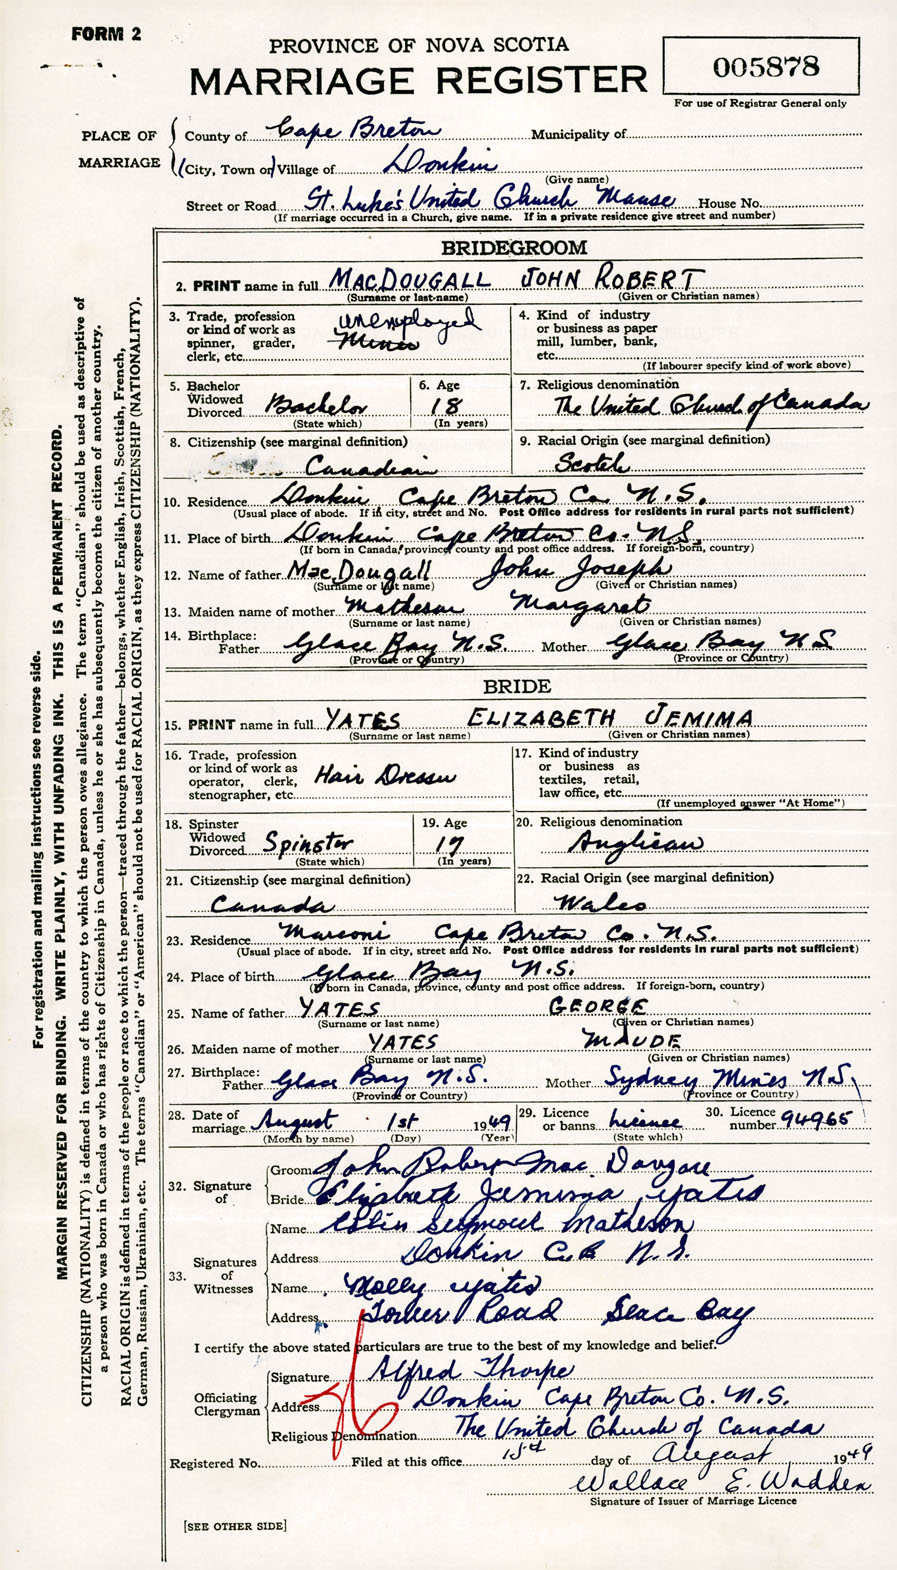 FORM 2
PROVINCE OF NOVA SCOTIA
MARRIAGE REGISTER
005878
For use of Registrar General only
PLACE OF MARRIAGE
County of Cape Breton Municipality of
(City, Town or) Village of Donkin
(Give name)
Street or Road St. Luke's United Church Manse House No.
(If marriage occurred in a Church, give name. If in a private residence give street and number)
BRIDEGROOM
2. PRINT name in full MACDOUGALL JOHN ROBERT
(Surname or last-name) (Given or Christian names)
3. Trade, profession or kind of work as spinner, grader, clerk, etc. unemployed
4. Kind of industry or business as paper mill, lumber, bank, etc.
(If labourer specify kind of work above)
5. Bachelor Widowed Divorced Bachelor
(State which)
6. Age 18
(In years)
7. Religious denomination
The United Church of Canada
8. Citizenship (see marginal definition)
Canadian
9. Racial Origin (see marginal definition)
Scotch
10. Residence Donkin Cape Breton Co. N.S.
(Usual place of abode. If in city, street and No. Post Office address for residents in rural parts not sufficient)
11. Place of birth Donkin Cape Breton Co. N.S.
(If born in Canada, province, county and post office address. If foreign-born, country)
12. Name of father MacDougall John Joseph
(Surname or last name) (Given or Christian names)
13. Maiden name of mother Matheson Margaret
(Surname or last name) (Given or Christian names)
14. Birthplace:
Father Glace Bay N.S. Mother Glace Bay N S
(Province or Country) (Province or Country)
BRIDE
15. PRINT name in full YATES ELIZABETH JEMIMA
(Surname or last name) (Given or Christian names)
16. Trade, profession or kind of work as operator, clerk, stenographer, etc. Hair Dresser
17. Kind of industry or business as textiles, retail, law office, etc.
(If unemployed answer "At Home")
18. Spinster Widowed Divorced Spinster
(State which)
19. Age 17
(In years)
20. Religious denomination
Anglican
21. Citizenship (see marginal definition)
Canada
22. Racial Origin (see marginal definition)
Wales
23. Residence Marconi Cape Breton Co. N.S.
(Usual place of abode. If in city, street and No. Post Office address for residents in rural parts not sufficient)
24. Place of birth Glace Bay N.S.
(If born in Canada, province, county and post office address. If foreign-born, country)
25. Name of father YATES GEORGE
(Surname or last name) (Given or Christian names)
26. Maiden name of mother YATES MAUDE
(Surname or last name) (Given or Christian names)
27. Birthplace:
Father Glace Bay N.S. Mother Sydney Mines N.S.
(Province or Country) (Province or Country)
28. Date of marriage August 1st 1949
(Month by name) (Day) (Year)
29. Licence or banns licence
(State which)
30. Licence number 94965
32. Signature of
Groom John Robert MacDougall
Bride Elizabeth Jemima Yates
33. Signatures of Witnesses
Name Colin Seymour Matheson
Address Donkin C.B N.S.
Name Molly Yates
Address Tower Road Glace Bay
I certify the above stated particulars are true to the best of my knowledge and belief.
Officiating Clergyman
Signature Alfred Thorpe
Address Donkin Cape Breton Co. N.S.
Religious Denomination The United Church of Canada
Registered No. Filed at this office 1st day of August 1949
Wallace E. Wadden
Signature of Issuer of Marriage Licence
[SEE OTHER SIDE]
For registration and mailing instructions see reverse side.
MARGIN RESERVED FOR BINDING. WRITE PLAINLY, WITH UNFADING INK. THIS IS A PERMANENT RECORD.
CITIZENSHIP (NATIONALITY) is defined in terms of the country to which the person owes allegiance. The term "Canadian" should be used as descriptive of
a person who was born in Canada or who has rights of Citizenship in Canada, unless he or she has subsequently become the citizen of another country.
RACIAL ORIGIN is defined in terms of the people or race to which the person—traced through the father—belongs, whether English, Irish, Scottish, French,
German, Russian, Ukrainian, etc. The terms "Canadian" or "American" should not be used for RACIAL ORIGIN, as they express CITIZENSHIP (NATIONALITY).